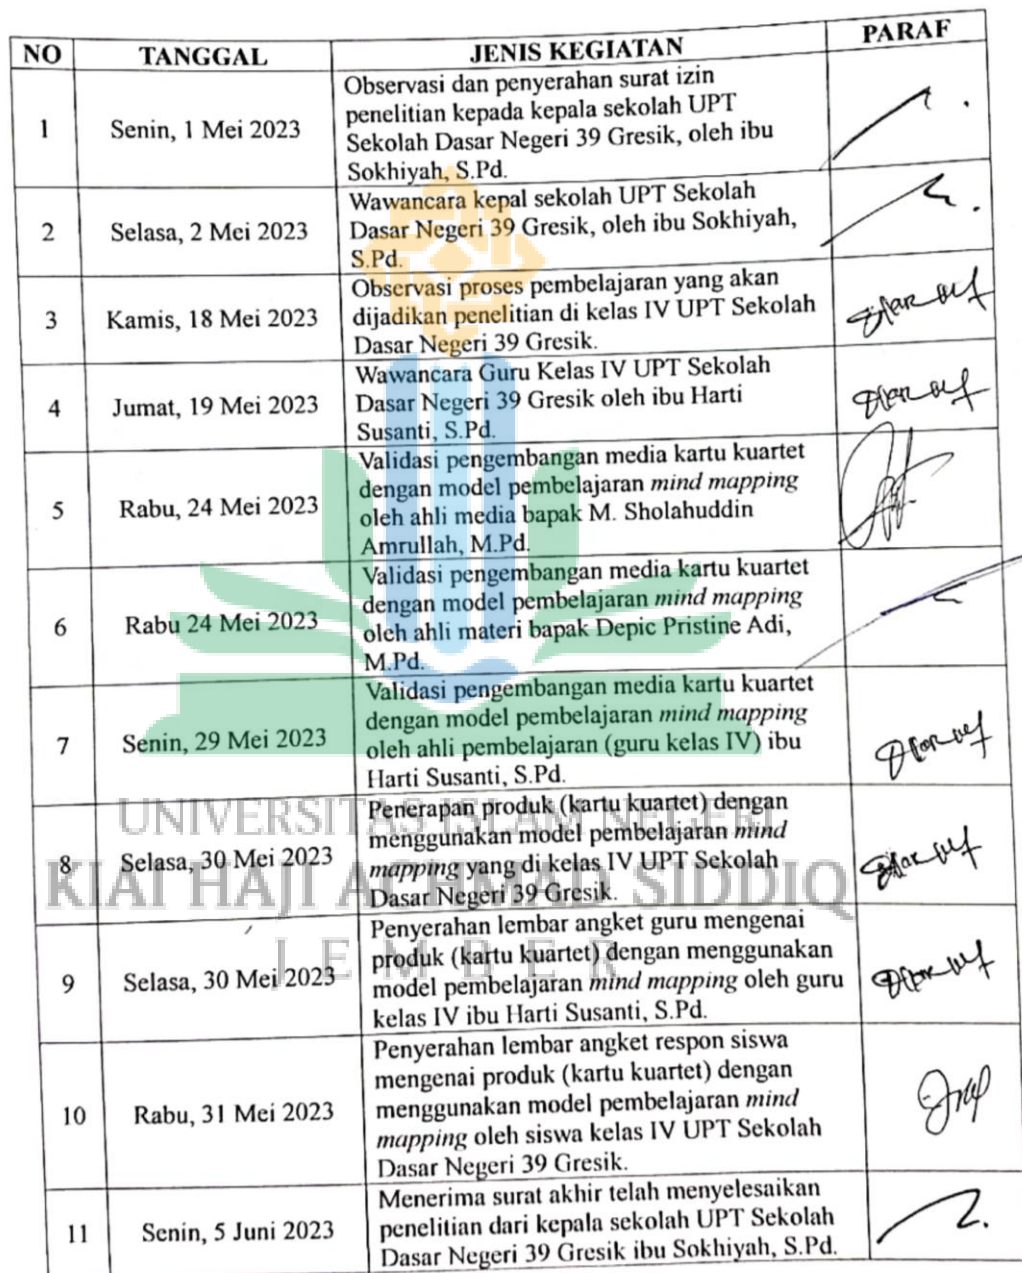 NO TANGGAL JENIS KEGIATAN PARAF
1 Senin, 1 Mei 2023 Observasi dan penyerahan surat izin
penelitian kepada kepala sekolah UPT
Sekolah Dasar Negeri 39 Gresik, oleh ibu
Sokhiyah, S.Pd.
2 Selasa, 2 Mei 2023 Wawancara kepal sekolah UPT Sekolah
Dasar Negeri 39 Gresik, oleh ibu Sokhiyah,
S.Pd.
3 Kamis, 18 Mei 2023 Observasi proses pembelajaran yang akan
dijadikan penelitian di kelas IV UPT Sekolah
Dasar Negeri 39 Gresik.
4 Jumat, 19 Mei 2023 Wawancara Guru Kelas IV UPT Sekolah
Dasar Negeri 39 Gresik oleh ibu Harti
Susanti, S.Pd.
5 Rabu, 24 Mei 2023 Validasi pengembangan media kartu kuartet
dengan model pembelajaran mind mapping
oleh ahli media bapak M. Sholahuddin
Amrullah, M.Pd.
6 Rabu 24 Mei 2023 Validasi pengembangan media kartu kuartet
dengan model pembelajaran mind mapping
oleh ahli materi bapak Depic Pristine Adi,
M.Pd.
7 Senin, 29 Mei 2023 Validasi pengembangan media kartu kuartet
dengan model pembelajaran mind mapping
oleh ahli pembelajaran (guru kelas IV) ibu
Harti Susanti, S.Pd.
8 Selasa, 30 Mei 2023 Penerapan produk (kartu kuartet) dengan
menggunakan model pembelajaran mind
mapping yang di kelas IV UPT Sekolah
Dasar Negeri 39 Gresik.
9 Selasa, 30 Mei 2023 Penyerahan lembar angket guru mengenai
produk (kartu kuartet) dengan menggunakan
model pembelajaran mind mapping oleh guru
kelas IV ibu Harti Susanti, S.Pd.
10 Rabu, 31 Mei 2023 Penyerahan lembar angket respon siswa
mengenai produk (kartu kuartet) dengan
menggunakan model pembelajaran mind
mapping oleh siswa kelas IV UPT Sekolah
Dasar Negeri 39 Gresik.
11 Senin, 5 Juni 2023 Menerima surat akhir telah menyelesaikan
penelitian dari kepala sekolah UPT Sekolah
Dasar Negeri 39 Gresik ibu Sokhiyah, S.Pd.
UNIVERSITAS ISLAM NEGERI
KIAI HAJI ACHMAD SIDDIQ
JEMBER